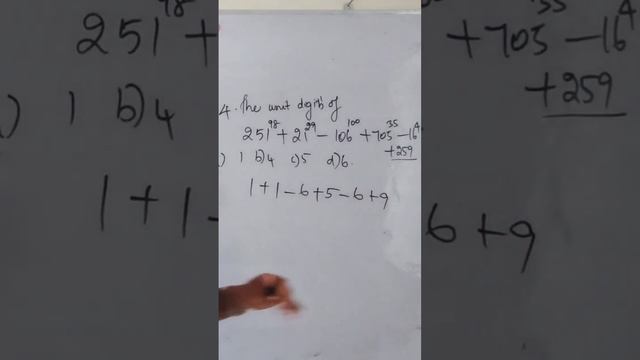 4. The unit digit of
251^98 + 21^29 - 106^100 + 705^35 - 16^4
+259
) 1 b)4 c)5 d)6
1 + 1 - 6 + 5 - 6 + 9